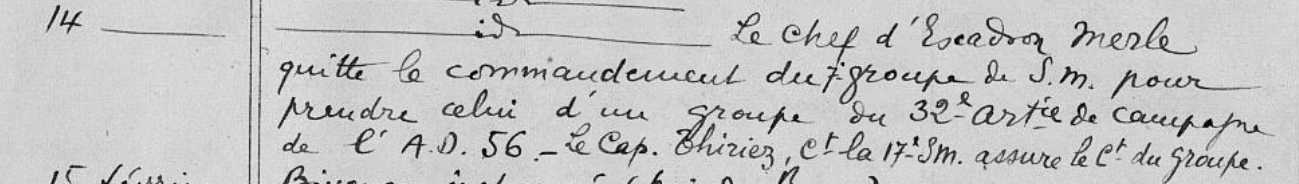 14 — id — Le Chef d'Escadron Merle
quitte le commandement du 7e groupe de S.M. pour
prendre celui d'un groupe du 32e Artie de campagne
de l'A.D. 56. - Le Cap. Thiriez, Ct la 17e S.M. assure le Ct du Groupe.
15 février